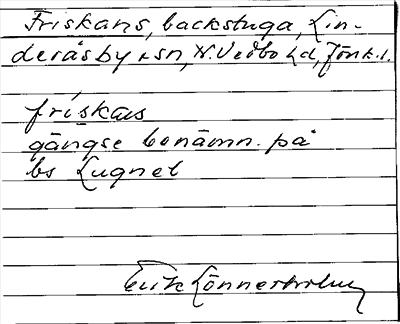 Friskans, backstuga, Lin-
deråsby o sn, N. Vedbo hd, Jönk. l.
friskans
gängse benämn. på
bs Lugnet
Erik Lönnerholm